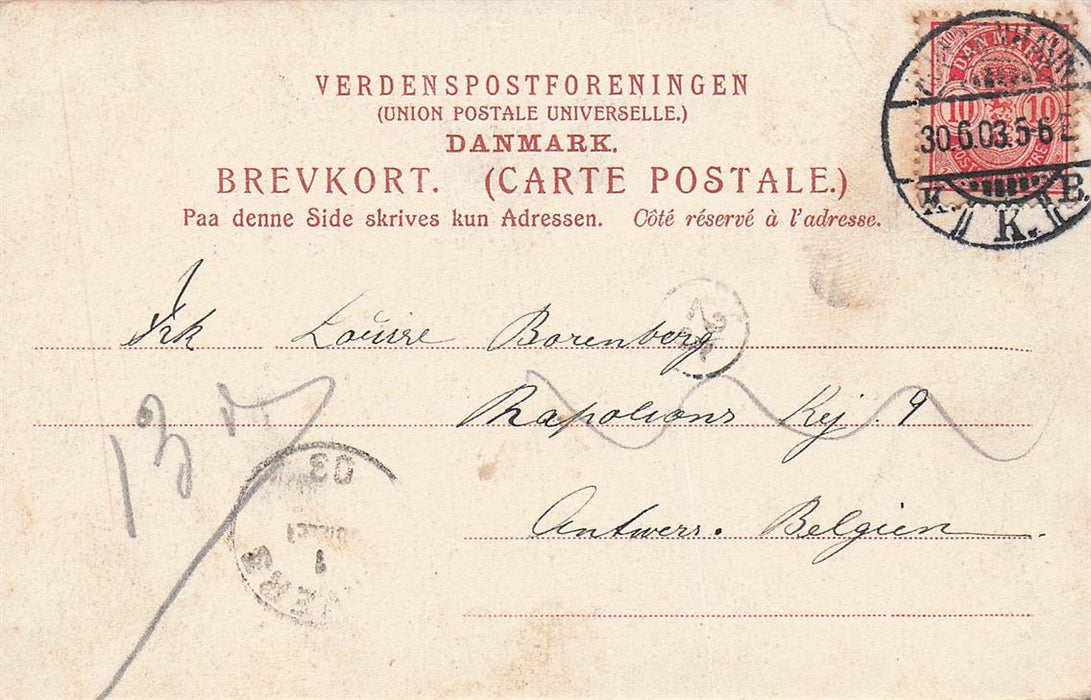 VERDENSPOSTFORENINGEN
(UNION POSTALE UNIVERSELLE.)
DANMARK.
BREVKORT. (CARTE POSTALE.)
Paa denne Side skrives kun Adressen. Côté réservé à l'adresse.
DANMARK
10 10
30.6.03.5-6 E
K. K. B.
Frk Louise Borenberg
Napolions Kej 9
Antwers. Belgien.
13
03
1